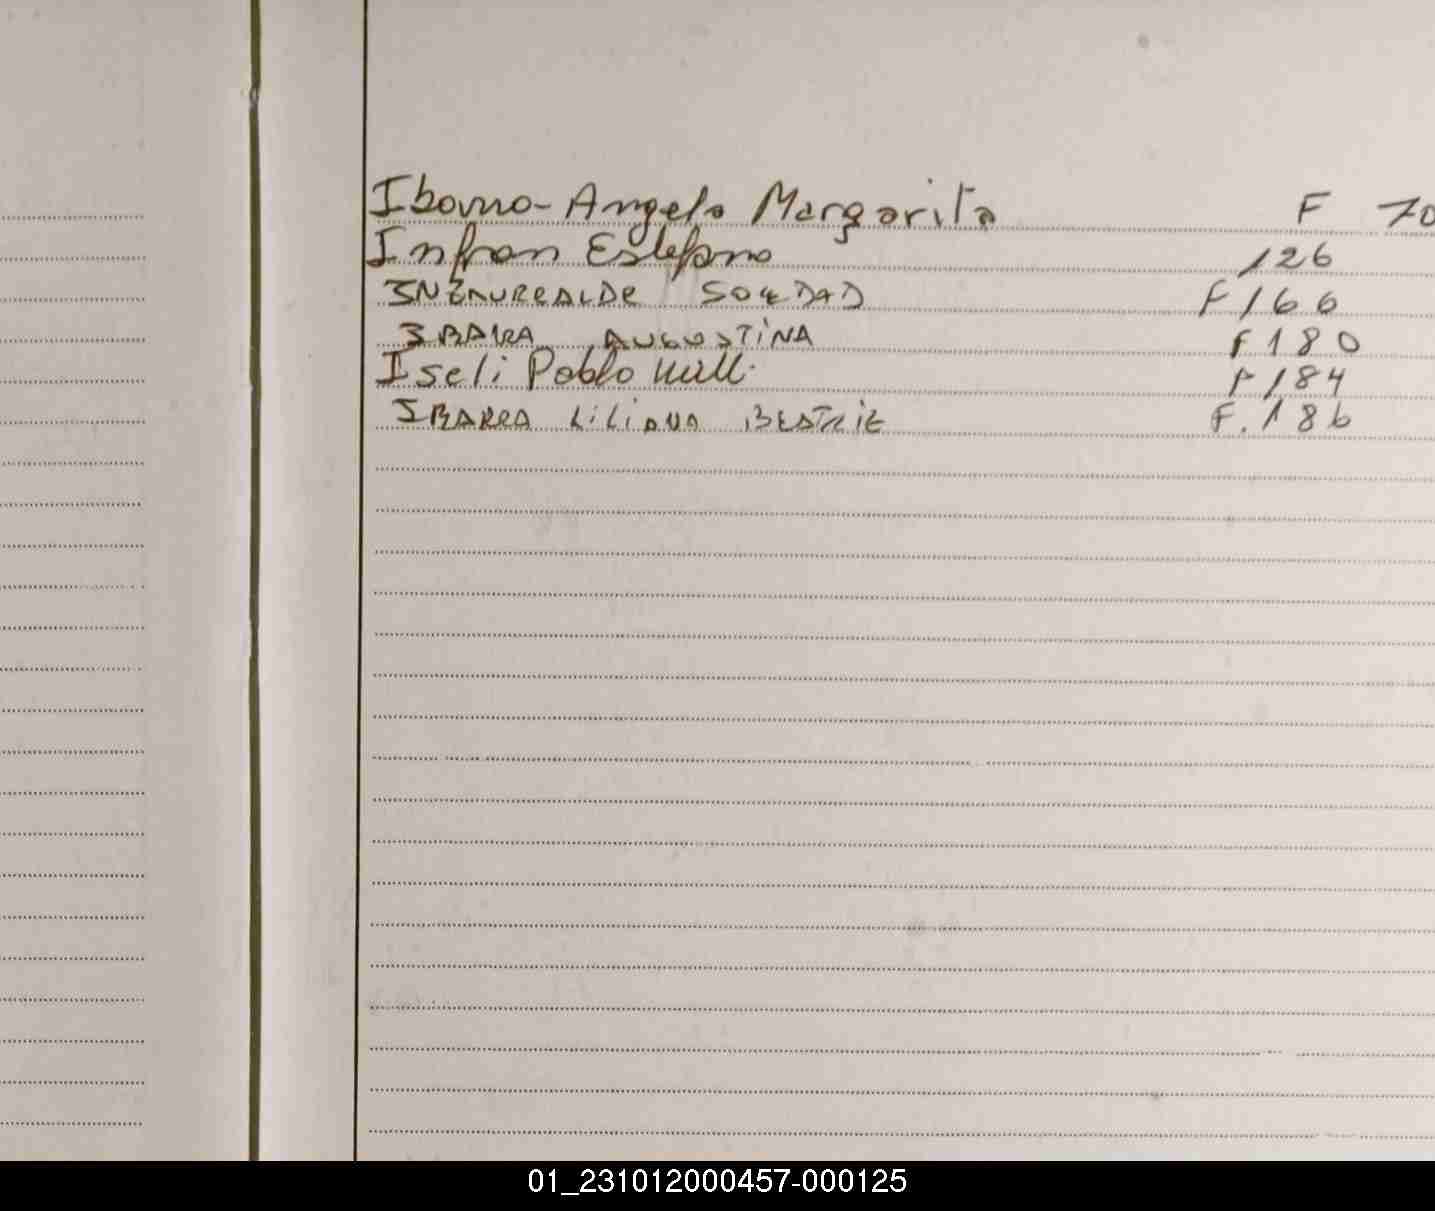 Ibarra - Angela Margarita F 70
Infran Estefano 126
INZAURRALDE SOLEDAD F 166
IBARRA AUGOSTINA F 180
Iseli Pablo F 184
IBARRA LILIANA BEATRIZ F. 186
01_231012000457-000125